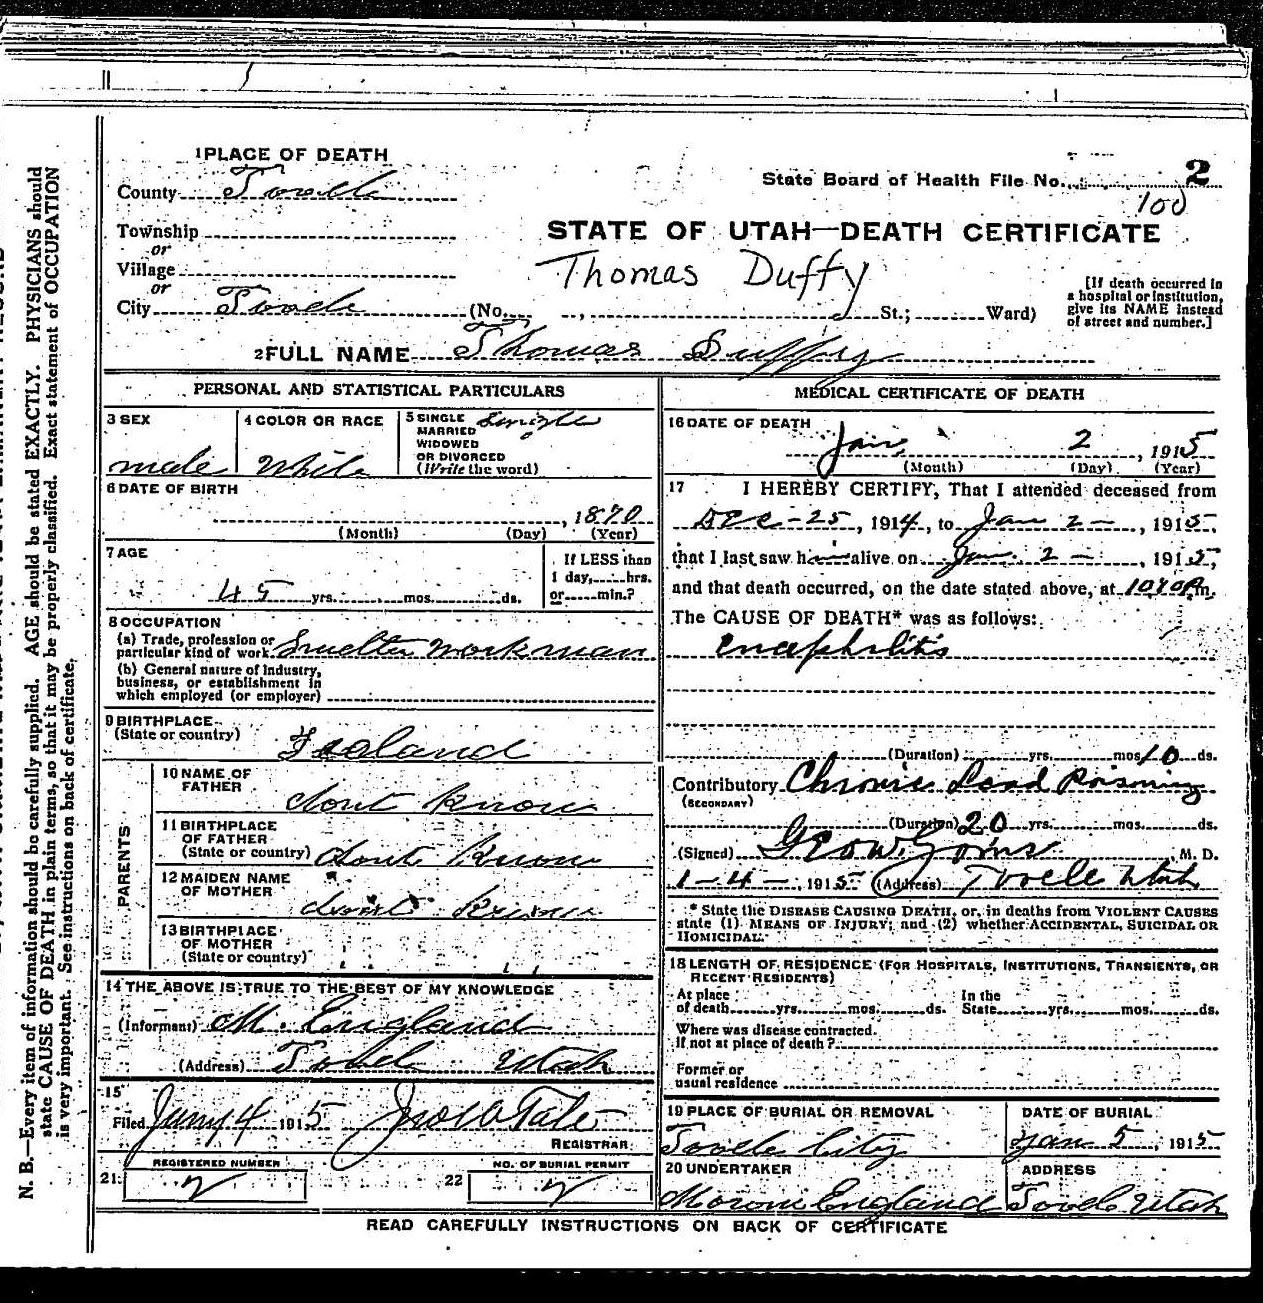 1 PLACE OF DEATH
County Tooele
State Board of Health File No. 2
100
Township
or
Village
or
City Tooele (No. St.; Ward)
STATE OF UTAH—DEATH CERTIFICATE
Thomas Duffy
[If death occurred in a hospital or institution, give its NAME instead of street and number.]
2 FULL NAME Thomas Duffy
PERSONAL AND STATISTICAL PARTICULARS
3 SEX
male
4 COLOR OR RACE
White
5 SINGLE MARRIED WIDOWED OR DIVORCED (Write the word)
Single
6 DATE OF BIRTH
, 1870
(Month) (Day) (Year)
7 AGE
45 yrs. mos. ds.
If LESS than 1 day, hrs. or min.?
8 OCCUPATION
(a) Trade, profession or particular kind of work Smelter Workman
(b) General nature of Industry, business, or establishment in which employed (or employer)
9 BIRTHPLACE
(State or country) Ireland
PARENTS
10 NAME OF FATHER dont know
11 BIRTHPLACE OF FATHER (State or country) dont Know
12 MAIDEN NAME OF MOTHER dont Know
13 BIRTHPLACE OF MOTHER (State or country) " "
14 THE ABOVE IS TRUE TO THE BEST OF MY KNOWLEDGE
(Informant) M. England
(Address) Tooele Utah
15
Filed Jany 4 1915
REGISTRAR
REGISTERED NUMBER
21. 2
NO. OF BURIAL PERMIT
22 2
MEDICAL CERTIFICATE OF DEATH
16 DATE OF DEATH
Jan. 2, 1915
(Month) (Day) (Year)
17 I HEREBY CERTIFY, That I attended deceased from
Dec-25, 1914, to Jan 2-, 1915,
that I last saw him alive on Jan. 2-, 1915,
and that death occurred, on the date stated above, at m.
The CAUSE OF DEATH* was as follows:
Encephilitis
(Duration) yrs. mos. 10 ds.
Contributory Chronic Lead Poisoning
(SECONDARY)
(Duration) 20 yrs. mos. ds.
(Signed) Geo W. Goins M. D.
1-4-, 1915 (Address) Tooele Utah
* State the DISEASE CAUSING DEATH, or, in deaths from VIOLENT CAUSES
state (1) MEANS OF INJURY; and (2) whether ACCIDENTAL, SUICIDAL OR
HOMICIDAL.
18 LENGTH OF RESIDENCE (FOR HOSPITALS, INSTITUTIONS, TRANSIENTS, OR
RECENT RESIDENTS)
At place of death yrs. mos. ds. In the State yrs. mos. ds.
Where was disease contracted.
If not at place of death?
Former or
usual residence
19 PLACE OF BURIAL OR REMOVAL
Tooele City
DATE OF BURIAL
Jan 5, 1915
20 UNDERTAKER
Moroni England
ADDRESS
Tooele Utah
READ CAREFULLY INSTRUCTIONS ON BACK OF CERTIFICATE
N. B.—Every item of information should be carefully supplied. AGE should be stated EXACTLY. PHYSICIANS should
state CAUSE OF DEATH in plain terms, so that it may be properly classified. Exact statement of OCCUPATION
is very important. See instructions on back of certificate.